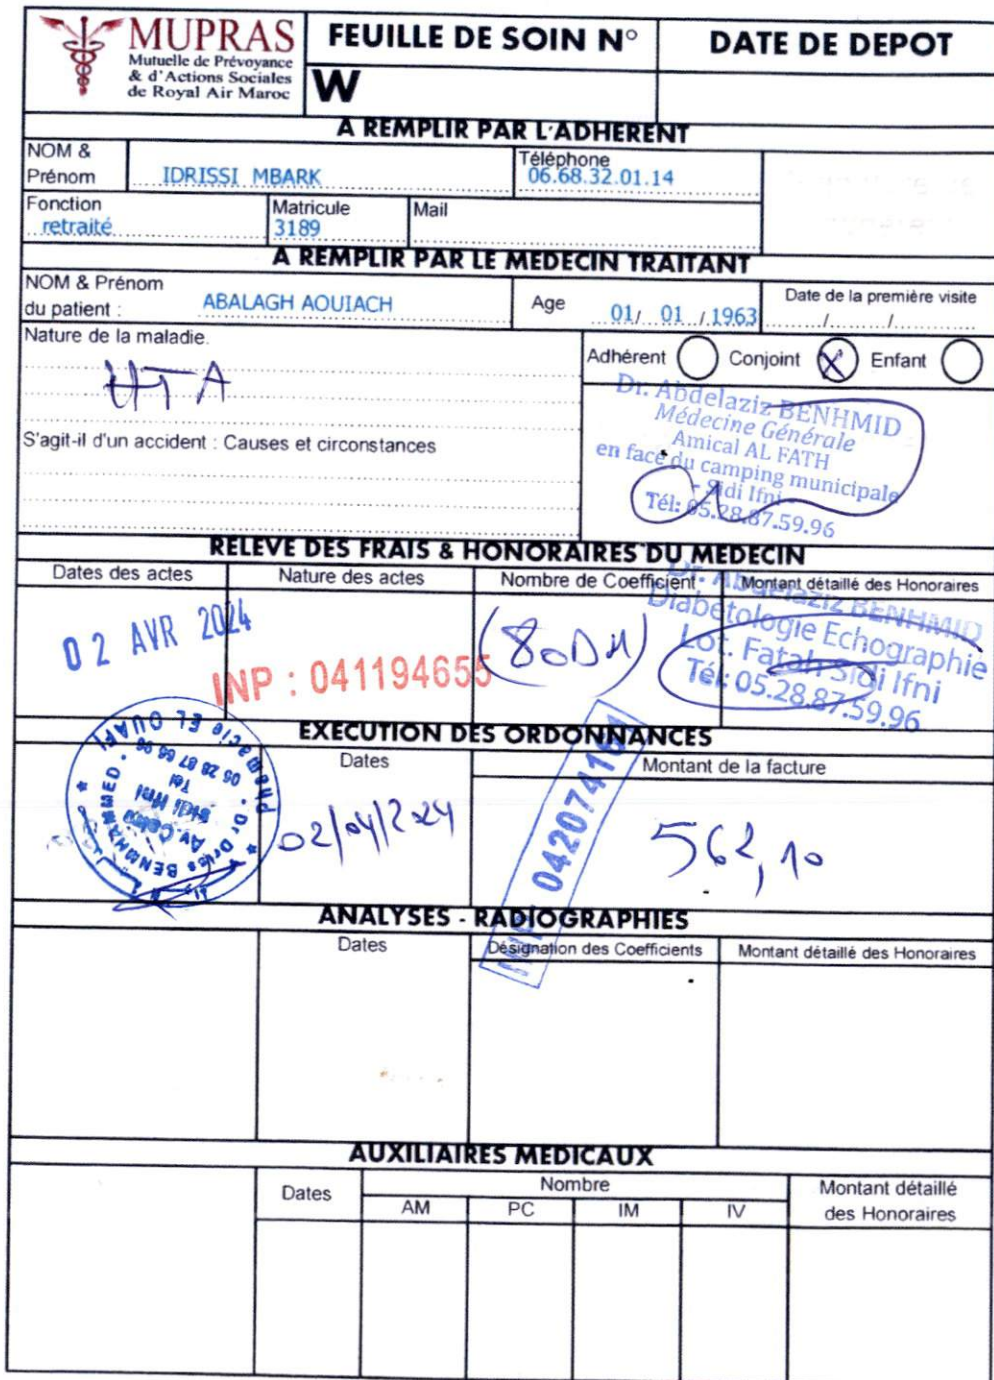 MUPRAS
Mutuelle de Prévoyance
& d'Actions Sociales
de Royal Air Maroc
FEUILLE DE SOIN N°
W
DATE DE DEPOT
A REMPLIR PAR L'ADHERENT
NOM &
Prénom IDRISSI MBARK
Téléphone
06.68.32.01.14
Fonction
retraité
Matricule
3189
Mail
A REMPLIR PAR LE MEDECIN TRAITANT
NOM & Prénom
du patient : ABALAGH AOUIACH
Age 01/ 01 / 1963
Date de la première visite
/ /
Nature de la maladie.
HTA
Adhérent Conjoint X Enfant
Dr. Abdelaziz BENHMID
Médecine Générale
Amical AL FATH
en face du camping municipale
- Sidi Ifni -
Tél: 05.28.87.59.96
S'agit-il d'un accident : Causes et circonstances
RELEVE DES FRAIS & HONORAIRES DU MEDECIN
Dates des actes Nature des actes Nombre de Coefficient Montant détaillé des Honoraires
02 AVR 2024
INP : 041194655
(80DH)
Dr. Abdelaziz BENHMID
Diabétologie Echographie
Lot. Fatah Sidi Ifni
Tél: 05.28.87.59.96
EXECUTION DES ORDONNANCES
Dates Montant de la facture
Pharmacie EL OUAFI
Dr Driss BENMHAMMED
Av.
Sidi Ifni
Tél
02/04/2024
562,10
ANALYSES - RADIOGRAPHIES
Dates Désignation des Coefficients Montant détaillé des Honoraires
AUXILIAIRES MEDICAUX
Dates Nombre Montant détaillé
des Honoraires
AM PC IM IV